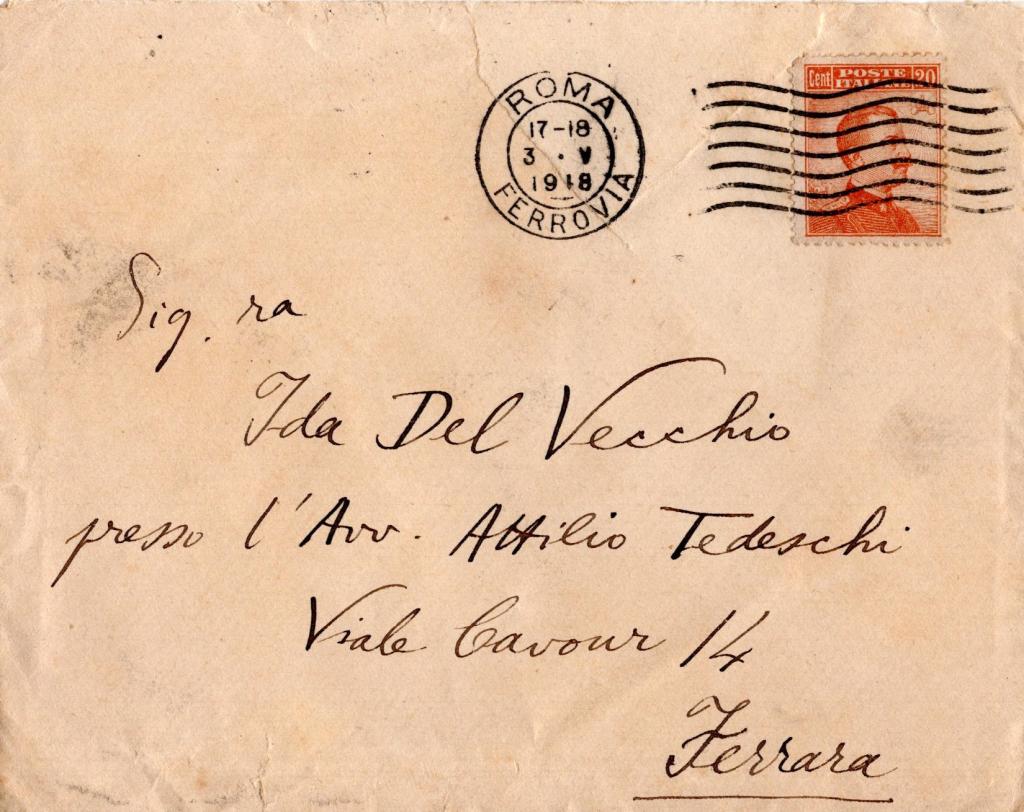 ROMA
17-18
3 · V
1918
FERROVIA
Cent POSTE ITALIANE 20
Sig.ra
Ida Del Vecchio
presso l'Avv. Attilio Tedeschi
Viale Cavour 14
Ferrara